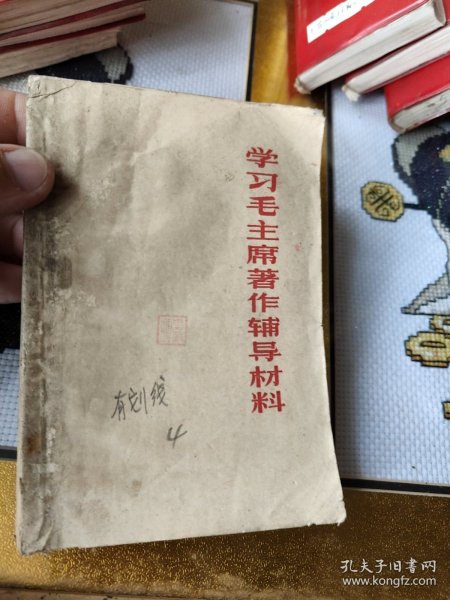 学习毛主席著作辅导材料
有划线
4
孔夫子旧书网
www.kongfz.com